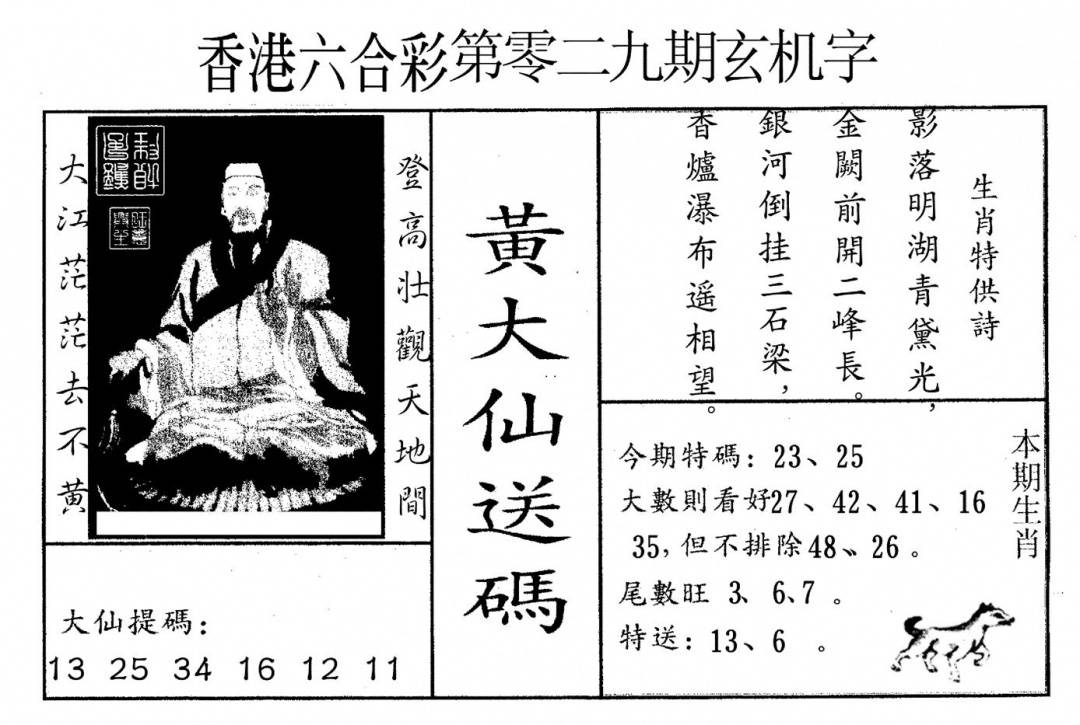 香港六合彩第零二九期玄机字
大江茫茫去不黃
登高壯觀天地間
黃大仙送碼
生肖特供詩
影落明湖青黛光，
金闕前開二峰長。
銀河倒挂三石梁，
香爐瀑布遥相望。
大仙提碼：
13 25 34 16 12 11
本期生肖
今期特碼：23、25
大數則看好27、42、41、16
35，但不排除48、26。
尾數旺 3、6、7 。
特送：13、6 。